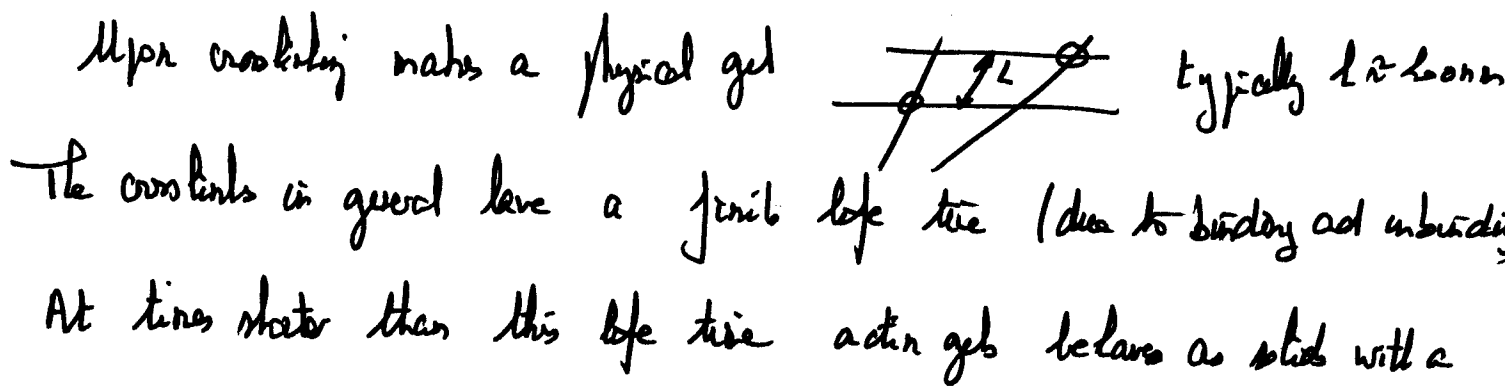 Upon crosslinking makes a physical gel L typically l ≈
The crosslinks in general have a finite life time (due to binding and unbinding
At times shorter than this life time actin gels behaves as solids with a